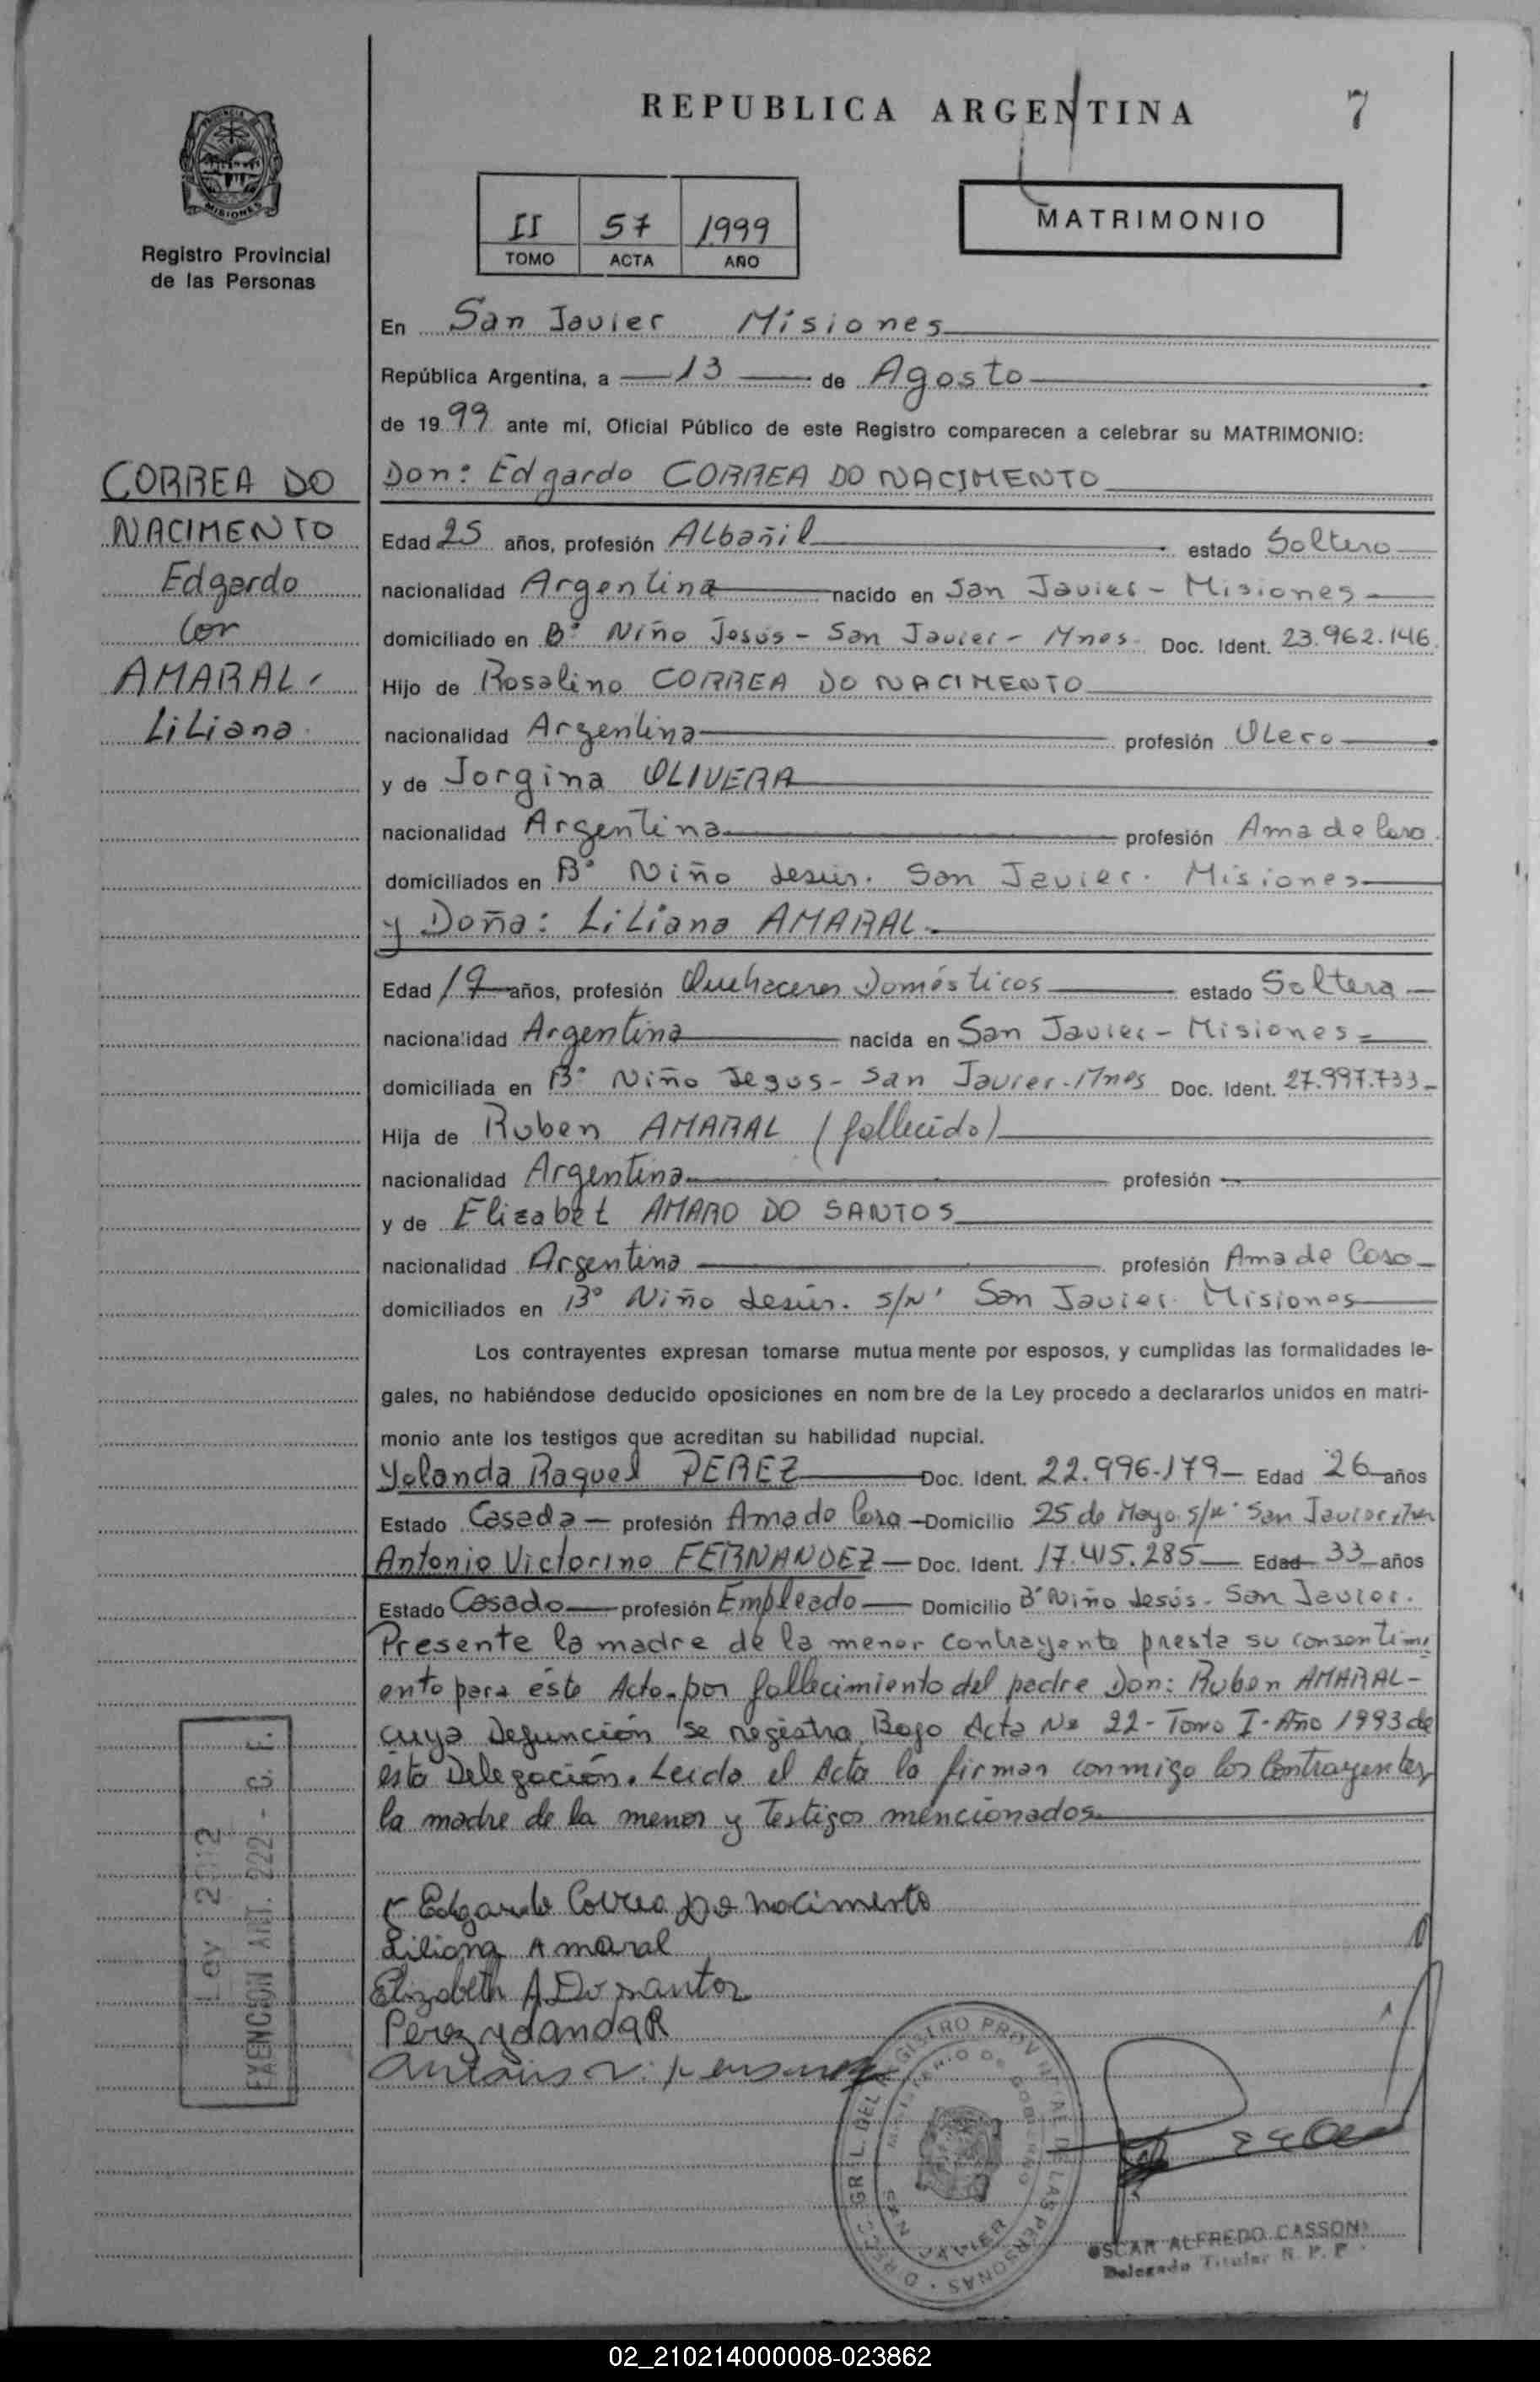 REPUBLICA ARGENTINA
7
II 57 1999
TOMO ACTA AÑO
MATRIMONIO
MISIONES
Registro Provincial
de las Personas
CORREA DO
NACIMENTO
Edgardo
Con
AMARAL-
Liliana
En San Javier Misiones
República Argentina, a 13 de Agosto
de 1999 ante mí, Oficial Público de este Registro comparecen a celebrar su MATRIMONIO:
Don: Edgardo CORREA DO NACIMENTO
Edad 25 años, profesión Albañil estado Soltero
nacionalidad Argentina nacido en San Javier - Misiones
domiciliado en B° Niño Jesús - San Javier - Mnes. Doc. Ident. 23.962.146
Hijo de Rosalino CORREA DO NACIMENTO
nacionalidad Argentina profesión Olero
y de Jorgina OLIVERA
nacionalidad Argentina profesión Ama de Casa
domiciliados en B° Niño Jesús. San Javier. Misiones
y Doña: Liliana AMARAL.
Edad 19 años, profesión Quehaceres Domésticos estado Soltera
nacionalidad Argentina nacida en San Javier - Misiones
domiciliada en B° Niño Jesus - San Javier - Mnes Doc. Ident. 27.997.733-
Hija de Ruben AMARAL (fallecido)
nacionalidad Argentina profesión
y de Elisabet AMARO DO SANTOS
nacionalidad Argentina profesión Ama de Casa
domiciliados en B° Niño Jesús. S/N° San Javier. Misiones
Los contrayentes expresan tomarse mutua mente por esposos, y cumplidas las formalidades le-
gales, no habiéndose deducido oposiciones en nom bre de la Ley procedo a declararlos unidos en matri-
monio ante los testigos que acreditan su habilidad nupcial.
Yolanda Raquel PEREZ Doc. Ident. 22.996.179 Edad 26 años
Estado Casada profesión Ama de Casa Domicilio 25 de Mayo S/N° San Javier
Antonio Victorino FERNANDEZ Doc. Ident. 17.415.285 Edad 33 años
Estado Casado profesión Empleado Domicilio B° Niño Jesús - San Javier.
Presente la madre de la menor contrayente presta su consentimi
ento para éste Acto. por fallecimiento del padre Don: Ruben AMARAL-
cuya Defunción se registra Bajo Acta N° 22 - Tomo I - Año 1993 de
ésta Delegación. Leída el Acta la firman conmigo los Contrayentes
la madre de la menor y Testigos mencionados
Edgardo Correa Do nacimento
Liliana Amaral
Elizabeth A Do santos
Perez yolanda R
Antonio V. Fernandez
Ley 2012
EXENCION ART. 222 - C. F.
DIREC. GRAL. DEL REGISTRO PROVINCIAL DE LAS PERSONAS
MINISTERIO DE GOBIERNO
SAN JAVIER
OSCAR ALFREDO CASSONI
Delegado Titular R. P. P.
02_210214000008-023862